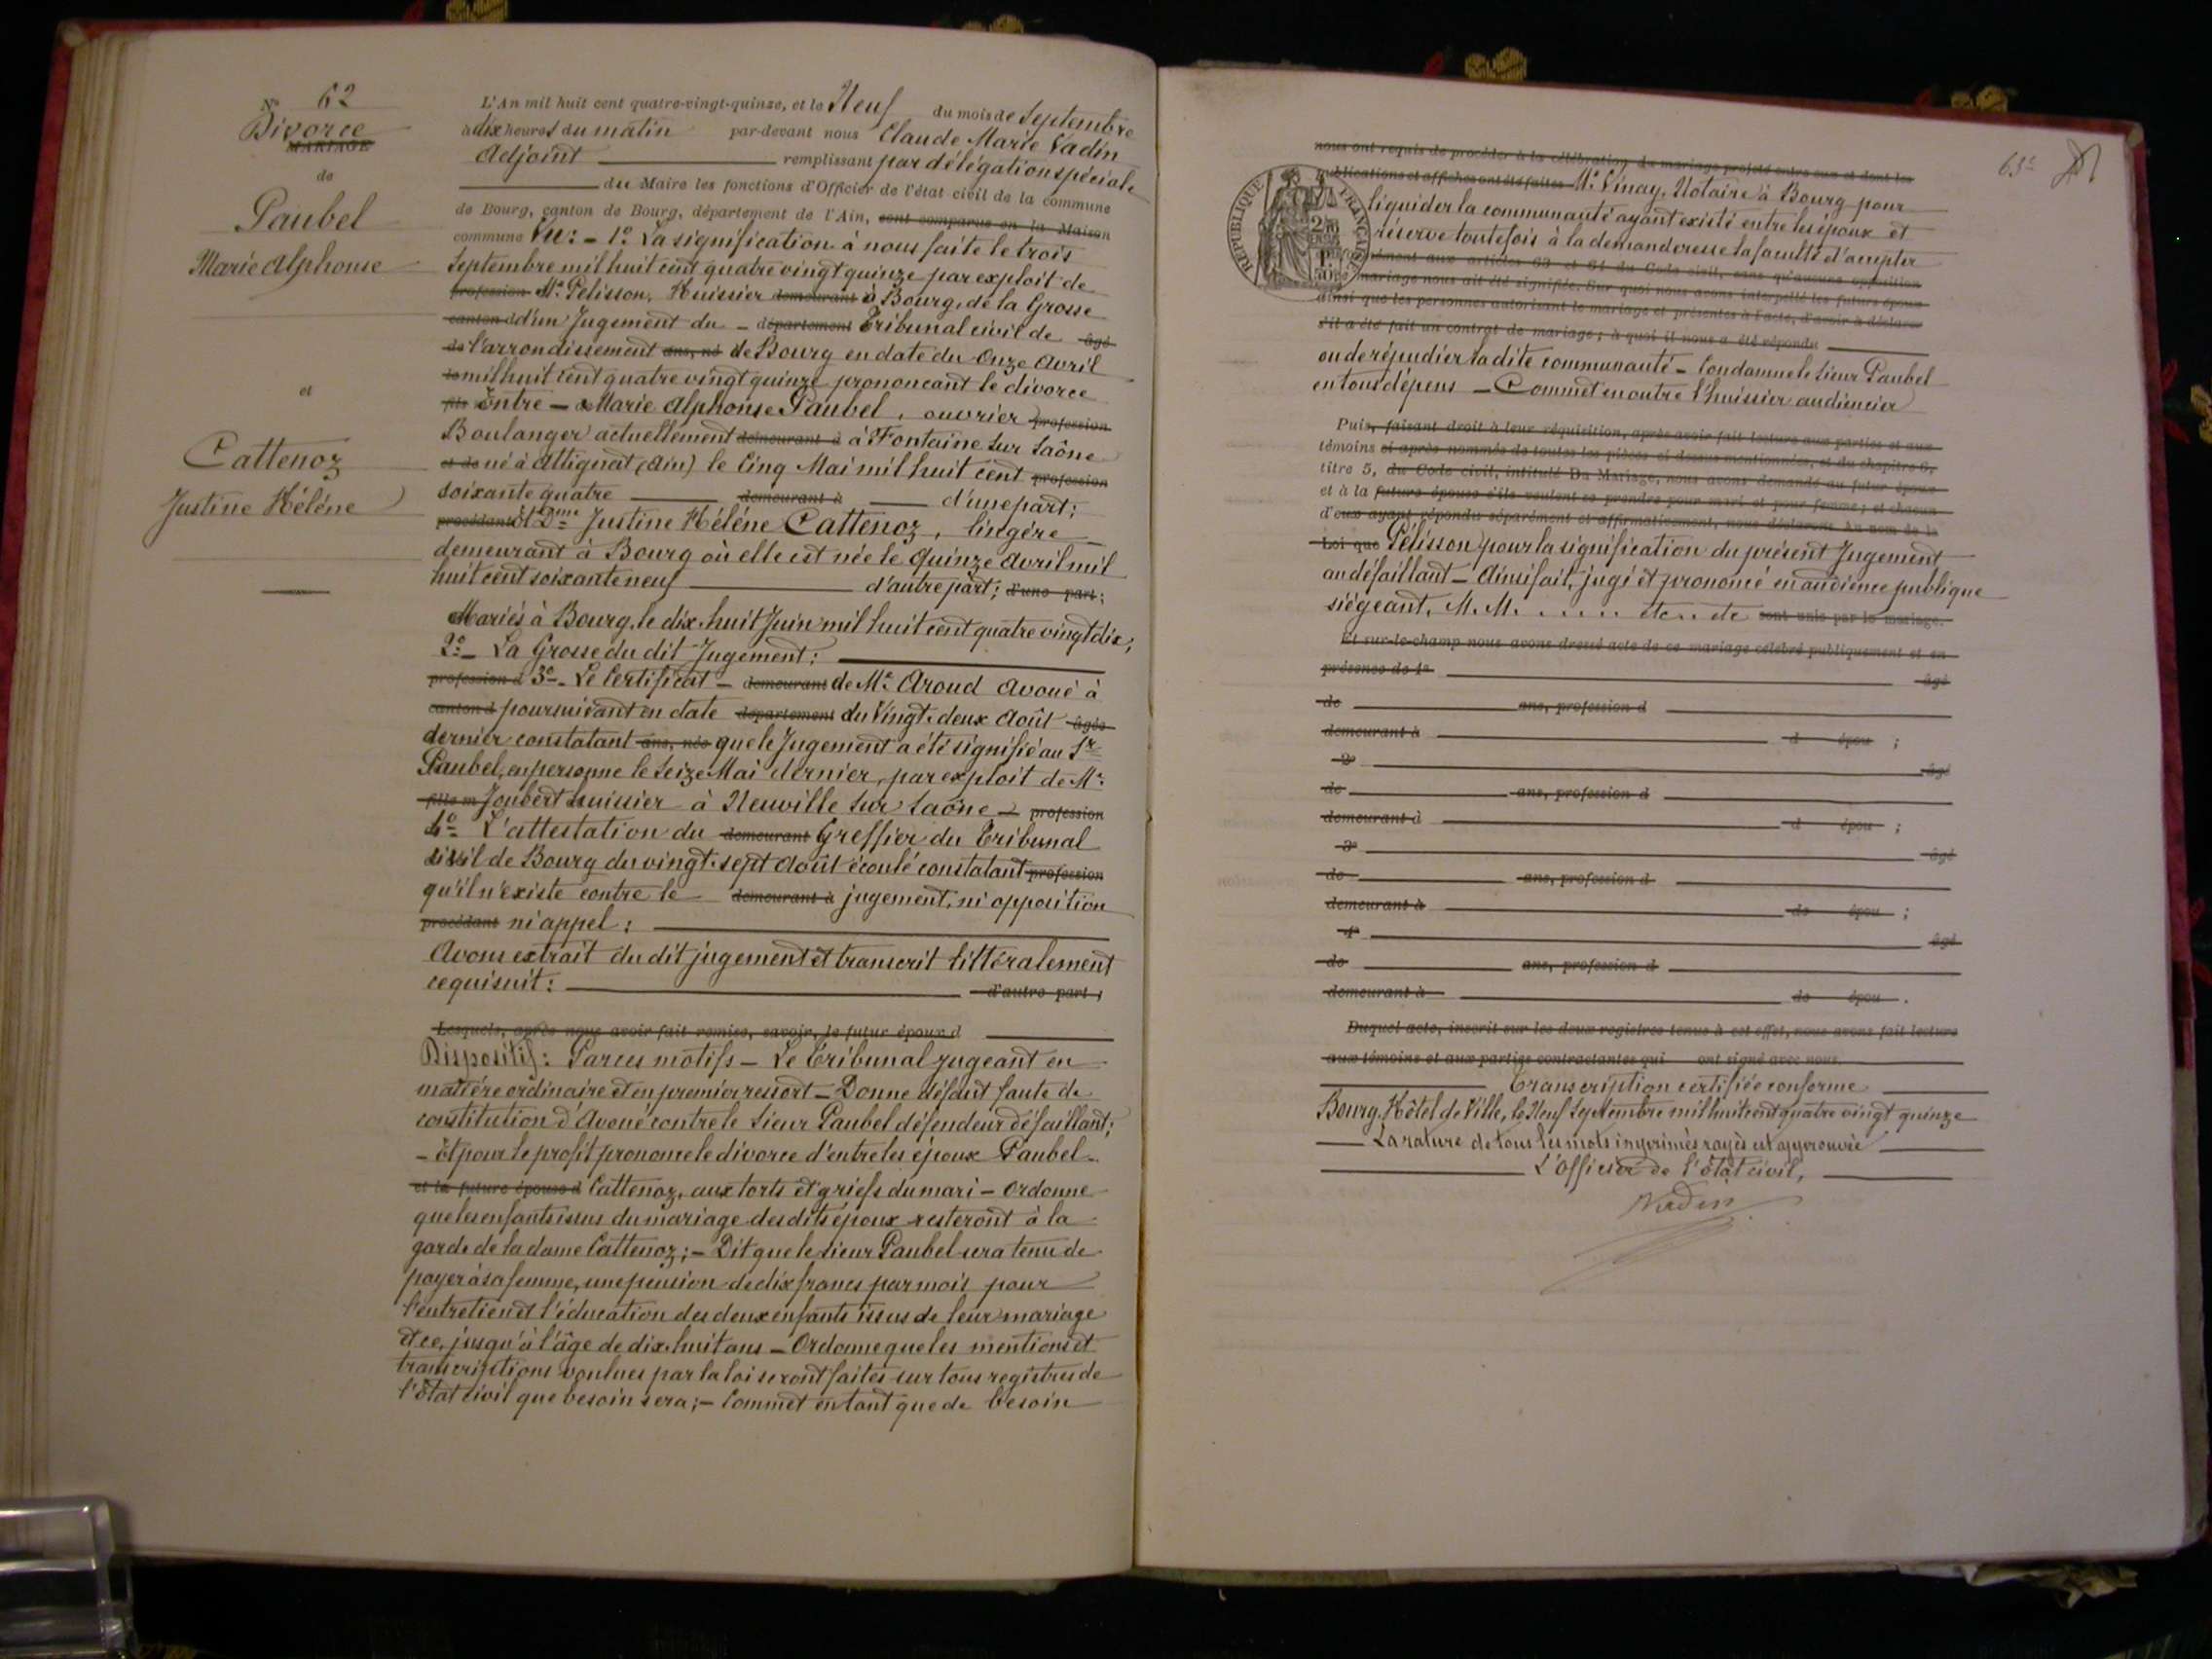 Nº 62
Divorce
MARIAGE
de
Paubel
Marie Alphonse
et
Cattenoz
Justine Hélène
L'An mil huit cent quatre-vingt-quinze, et le Neuf du mois de Septembre
à dix heures du matin par-devant nous Claude Marie Vadin
Adjoint remplissant par délégation spéciale
du Maire les fonctions d'Officier de l'état civil de la commune
de Bourg, canton de Bourg, département de l'Ain, sont comparus en la Maison
commune Vu : - 1º La signification à nous faite le trois
Septembre mil huit cent quatre vingt quinze par exploit de
profession Me Pelisson, Huissier demeurant à Bourg, de la Grosse
canton d d'un Jugement du - département Tribunal civil de âgé
de l'arrondissement ans, né de Bourg en date du Onze Avril
le mil huit cent quatre vingt quinze prononcant le divorce
fils Entre - Marie Alphonse Paubel, ouvrier profession
Boulanger actuellement demeurant à à Fontaine sur Saône
et de né à Attignat (Ain) le Cinq Mai mil huit cent profession
soixante quatre demeurant à d'une part ;
procédant Et Dme Justine Hélène Cattenoz, lingère
demeurant à Bourg où elle est née le quinze avril mil
huit cent soixante neuf d'autre part ; d'une part ;
Mariés à Bourg, le dix-huit Juin mil huit cent quatre vingt dix ;
2º - La Grosse du dit Jugement ;
profession d 3º - Le Certificat - demeurant de Me Aroud avoué à
canton d poursuivant en date département du Vingt-deux Août âgée
dernier constatant ans, née que le Jugement a été signifié au Sr
Paubel, en personne le Seize Mai dernier, par exploit de Me
fille m Joubert huissier à Neuville sur Saône - profession
4º - L'attestation du demeurant Greffier du Tribunal
civil de Bourg du vingt-sept Août écoulé constatant profession
qu'il n'existe contre le demeurant à jugement, ni opposition
procédant ni appel ;
Avons extrait du dit jugement et transcrit littéralement
ce qui suit : d'autre part ;
Lesquels, après nous avoir fait remise, savoir, le futur époux d
Dispositif : Par ces motifs - Le Tribunal jugeant en
matière ordinaire et en premier ressort - Donne défaut faute de
constitution d'Avoué contre le Sieur Paubel défendeur défaillant ;
- Et pour le profit prononce le divorce d'entre les époux Paubel -
et la future épouse d Cattenoz, aux torts et griefs du mari - Ordonne
que les enfants issus du mariage des dits époux resteront à la
garde de la dame Cattenoz ; - Dit que le Sieur Paubel sera tenu de
payer à sa femme, une pension de dix francs par mois pour
l'entretien et l'éducation des deux enfants issus de leur mariage
et ce, jusqu'à l'âge de dix-huit ans - Ordonne que les mentions et
transcriptions voulues par la loi seront faites sur tous registres de
l'état civil que besoin sera ; - Commet en tant que de besoin
63e
nous ont requis de procéder à la célébration du mariage projeté entre eux et dont les
publications et affiches ont été faites Me Vinay, Notaire à Bourg pour
RÉPUBLIQUE FRANÇAISE
liquider la communauté ayant existé entre les époux et
réserve toutefois à la demanderesse la faculté d'accepter
aux articles 63 et 64 du Code civil, sans qu'aucune opposition
mariage nous ait été signifiée. Sur quoi nous avons interpellé les futurs époux
ainsi que les personnes autorisant le mariage et présentes à l'acte, d'avoir à déclarer
s'il a été fait un contrat de mariage ; à quoi il nous a été répondu
ou de répudier la dite communauté - Condamne le Sieur Paubel
en tous dépens - Commet en outre l'huissier audiencier
Puis, faisant droit à leur réquisition, après avoir fait lecture aux parties et aux
témoins ci-après nommés de toutes les pièces ci-dessus mentionnées, et du chapitre 6,
titre 5, du Code civil, intitulé Du Mariage, nous avons demandé au futur époux
et à la future épouse s'ils veulent se prendre pour mari et pour femme ; et chacun
d'eux ayant répondu séparément et affirmativement, nous déclarons au nom de la
Loi que Pélisson pour la signification du présent Jugement
au défaillant - Ainsi fait, jugé et prononcé en audience publique
siégeant, M.M. . . . . . etc.. etc sont unis par le mariage.
Et sur-le-champ nous avons dressé acte de ce mariage célébré publiquement et en
présence de 1º âgé
de ans, profession d
demeurant à d épou ;
2º âgé
de ans, profession d
demeurant à d épou ;
3º âgé
de ans, profession d
demeurant à de épou ;
4º âgé
de ans, profession d
demeurant à de épou .
Duquel acte, inscrit sur les deux registres tenus à cet effet, nous avons fait lecture
aux témoins et aux parties contractantes qui ont signé avec nous.
Transcription certifiée conforme
Bourg, Hôtel de Ville, le Neuf Septembre mil huit cent quatre vingt quinze
La rature de tous les mots imprimés rayés est approuvée
L'Officier de l'état civil,
Vadin